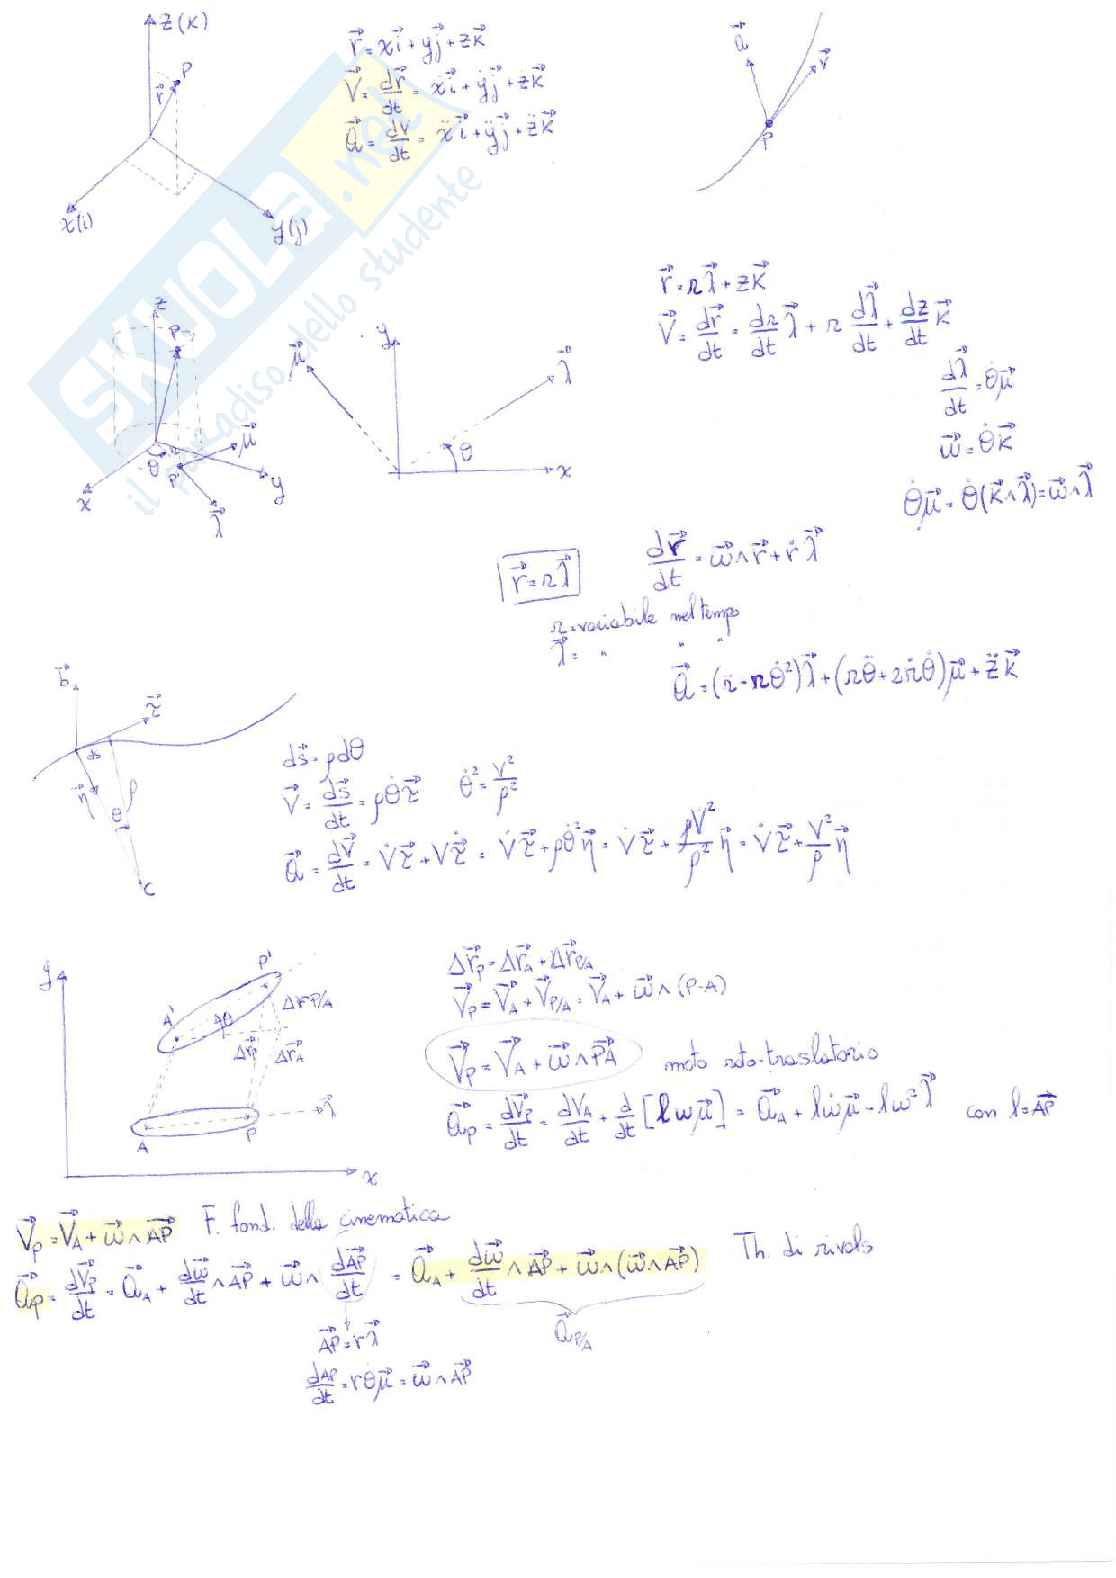 z(k)
P
r⃗
x(i)
y(j)
r⃗ = xi⃗ + yj⃗ + zk⃗
V⃗ = dr⃗/dt = ẋi⃗ + ẏj⃗ + żk⃗
a⃗ = dv/dt = ẍi⃗ + ÿj⃗ + z̈k⃗
a⃗
r⃗
P
SKUOLA.net
il paradiso dello studente
z
P
μ⃗
θ
P'
x
y
λ⃗
y
μ⃗
λ⃗
θ
x
r⃗ = rλ⃗ + zk⃗
V⃗ = dr⃗/dt = dr/dt λ⃗ + r dλ⃗/dt + dz/dt k⃗
dλ⃗/dt = θ̇μ⃗
ω⃗ = θ̇k⃗
θ̇μ⃗ = θ̇(k⃗∧λ⃗) = ω⃗∧λ⃗
r⃗ = rλ⃗
dr⃗/dt = ω⃗∧r⃗ + ṙλ⃗
r = variabile nel tempo
λ⃗ = " " "
a⃗ = (r̈ - rθ̇²)λ⃗ + (rθ̈ + 2ṙθ̇)μ⃗ + z̈k⃗
b⃗
τ⃗
ds
η⃗
ρ
θ
C
ds⃗ = ρdθ
V⃗ = ds⃗/dt = ρθ̇τ⃗ θ̇² = V²/ρ²
a⃗ = dV⃗/dt = V̇τ⃗ + Vτ⃗̇ = V̇τ⃗ + ρθ̇²η⃗ = V̇τ⃗ + ρV²/ρ² η⃗ = V̇τ⃗ + V²/ρ η⃗
y
P'
A'
Δθ
Δr P/A
Δr⃗P
Δr⃗A
λ⃗
A
P
x
Δr⃗P = Δr⃗A + Δr⃗P/A
V⃗P = V⃗A + V⃗P/A = V⃗A + ω⃗∧(P-A)
V⃗P = V⃗A + ω⃗∧PA⃗ moto roto-traslatorio
a⃗P = dV⃗P/dt = dVA/dt + d/dt [lωμ⃗] = a⃗A + lω̇μ⃗ - lω²λ⃗ con l = AP⃗
V⃗P = V⃗A + ω⃗∧AP⃗ F. fond. della cinematica
a⃗P = dV⃗P/dt = a⃗A + dω⃗/dt ∧AP⃗ + ω⃗∧ dAP⃗/dt = a⃗A + dω⃗/dt ∧AP⃗ + ω⃗∧(ω⃗∧AP⃗) Th. di rivals
a⃗P/A
AP⃗ = rλ⃗
dAP/dt = rθ̇μ⃗ = ω⃗∧AP⃗